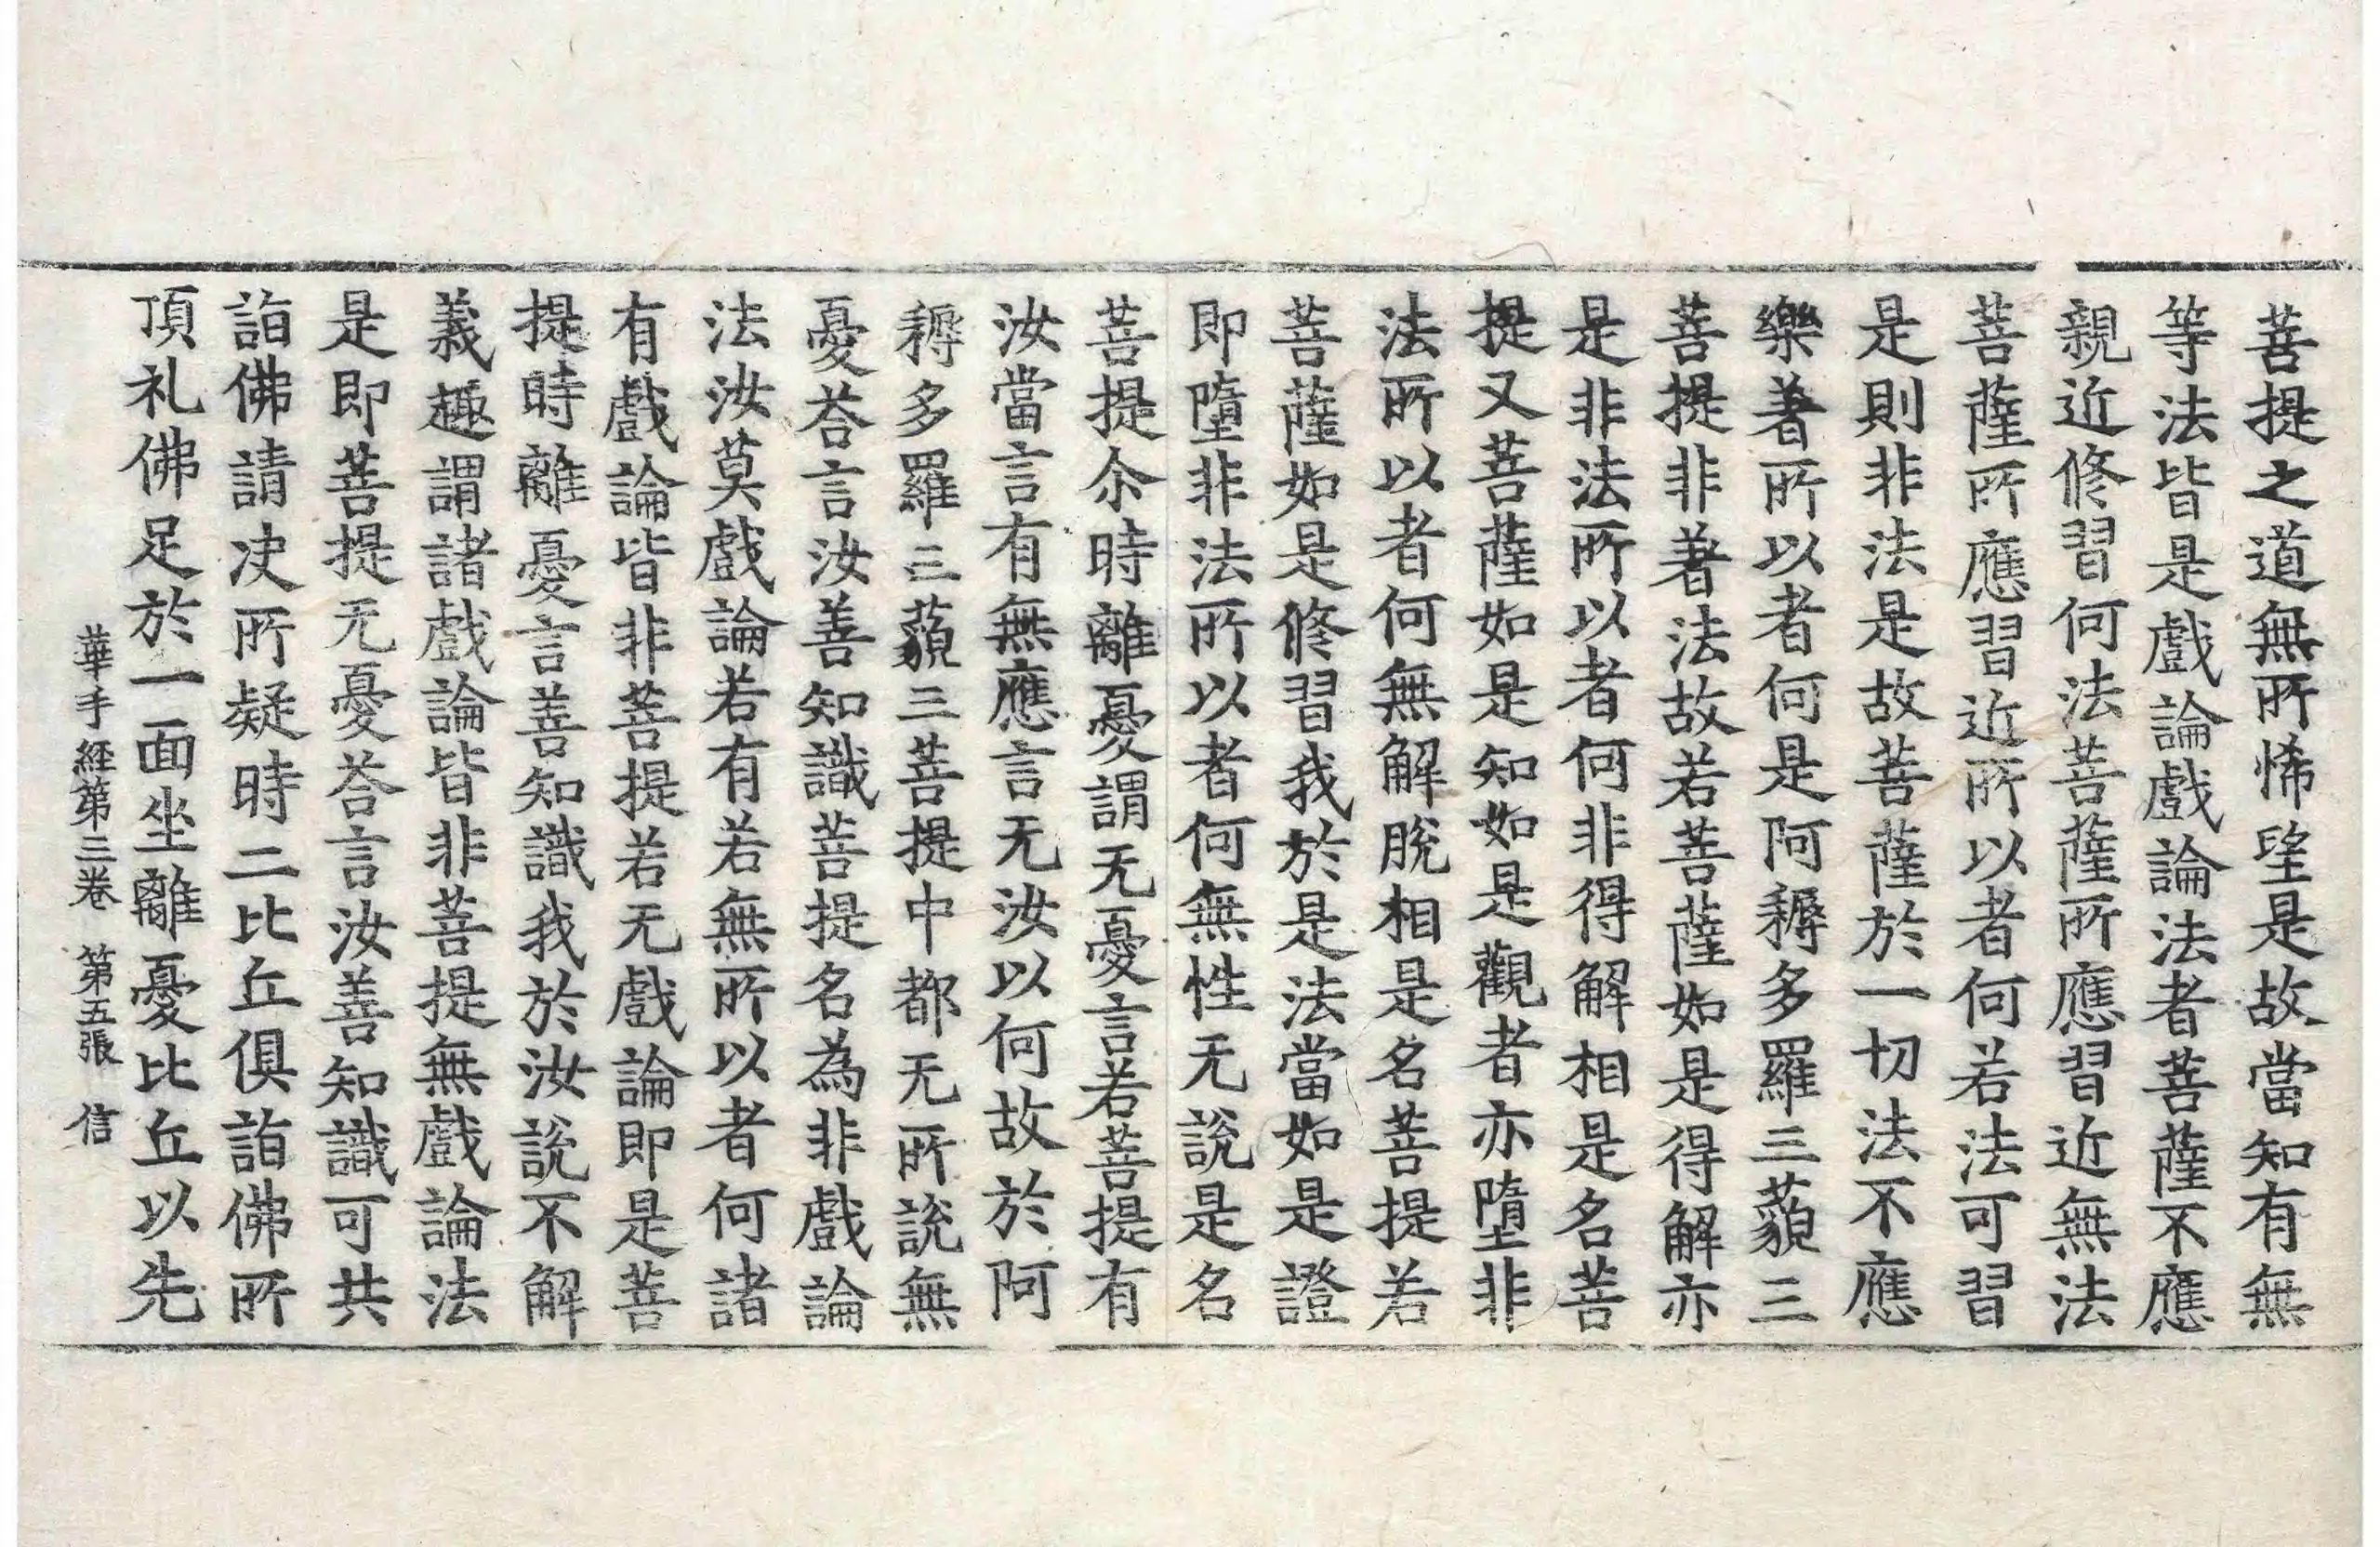 菩提之道無所悕望是故當知有無
等法皆是戲論戲論法者菩薩不應
親近修習何法菩薩所應習近無法
菩薩所應習近所以者何若法可習
是則非法是故菩薩於一切法不應
樂著所以者何是阿耨多羅三藐三
菩提非著法故若菩薩如是得解亦
是非法所以者何非得解相是名菩
提又菩薩如是知如是觀者亦墮非
法所以者何無解脫相是名菩提若
菩薩如是修習我於是法當如是證
即墮非法所以者何無性无說是名
菩提尒時離憂謂无憂言若菩提有
汝當言有無應言无汝以何故於阿
耨多羅三藐三菩提中都无所說無
憂荅言汝善知識菩提名為非戲論
法汝莫戲論若有若無所以者何諸
有戲論皆非菩提若无戲論即是菩
提時離憂言善知識我於汝說不解
義趣謂諸戲論皆非菩提無戲論法
是即菩提无憂荅言汝善知識可共
詣佛請決所疑時二比丘俱詣佛所
頂礼佛足於一面坐離憂比丘以先
華手経第三卷 第五張 信